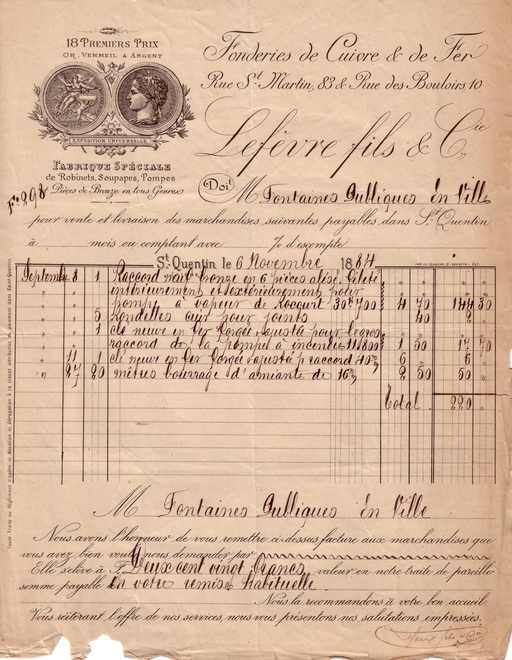 18 PREMIERS PRIX
OR, VERMEIL & ARGENT
EXPOSITION UNIVERSELLE
FABRIQUE SPÉCIALE
de Robinets, Soupapes, Pompes
Pièces de Bronze en tous Genres
Fo 298
Fonderies de Cuivre & de Fer
Rue St Martin, 83 & Rue des Bouloirs 10
Lefèvre fils & Cie
Doit M Fontaines Publiques En Ville
pour vente et livraison des marchandises suivantes payables dans St Quentin
à mois ou comptant avec % d'escompte
St Quentin le 6 Novembre 1884
Septembre 8 1 Raccord neuf bronze en 6 pièces alésé, fileté
intérieurement et extérieurement pour
pompe à vapeur de Rocourt 30k700 4 70 144 30
" " 5 Rondelles cuir pour joints " 40 2 "
" " 1 clé neuve en fer forgée ajustée pour le gros
raccord de la pompe à incendie 11k800 1 50 17 70
" 11 1 clé neuve en fer forgée ajustée p raccord 40 6 " 6 "
" 27 20 mètres bourrage d'amiante de 16 2 50 50 "
Total 220 "
M Fontaines Publiques En Ville
Nous avons l'honneur de vous remettre ci-dessus facture aux marchandises que
vous avez bien voulu nous demander par
Elle s'élève à F. Deux cent vingt francs valeur en notre traite de pareille
somme payable En votre remise habituelle
Nous la recommandons à votre bon accueil
Vous réitérant l'offre de nos services, nous vous présentons nos salutations empressées.